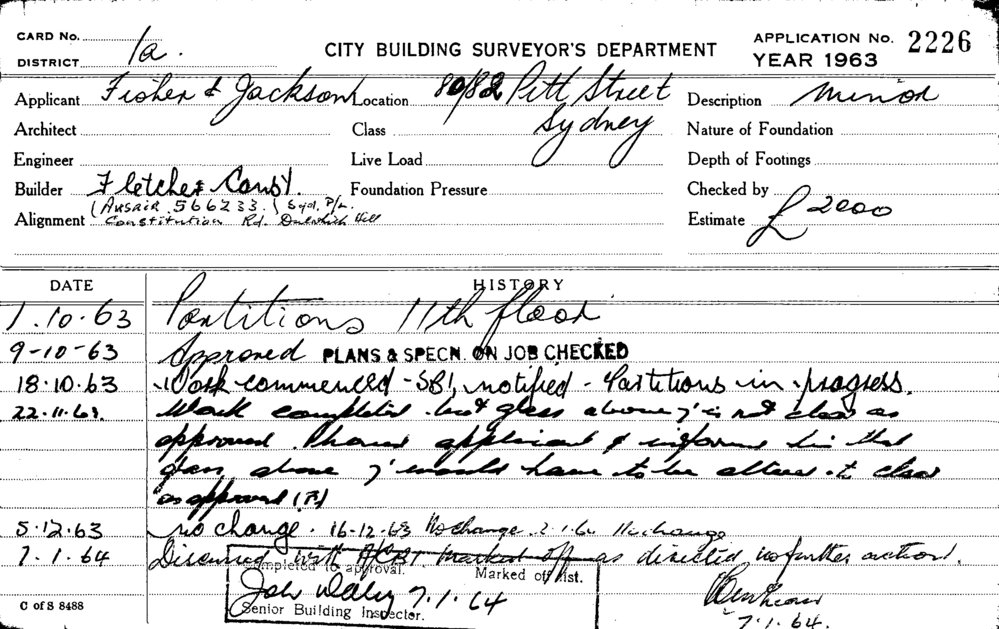 CARD No. 1a. CITY BUILDING SURVEYOR'S DEPARTMENT APPLICATION No. 2226
DISTRICT YEAR 1963
Applicant Fisher & Jackson Location 80/82 Pitt Street Description Minor
Architect Class Sydney Nature of Foundation
Engineer Live Load Depth of Footings
Builder Fletcher Const. Foundation Pressure Checked by
(Ausair 566233. Syd. P/L.
Alignment Constitution Rd. Dulwich Hill Estimate £2000
DATE HISTORY
1.10.63 Partitions 11th floor
9-10-63 Approved PLANS & SPECN. ON JOB CHECKED
18.10.63 Work commenced - SBI notified - Partitions in progress.
22.11.63 Work completed but glass above 7' is not clear as
approved. Phoned applicant & informed him that
glass above 7' would have to be altered to clear
as approved
5.12.63 no change. 16-12-63 No change. No change
7.1.64 Discussed with marked off as directed no further action.
Completed to approval. Marked off list.
7.1.64
Senior Building Inspector.
C of S 8488 7.1.64.